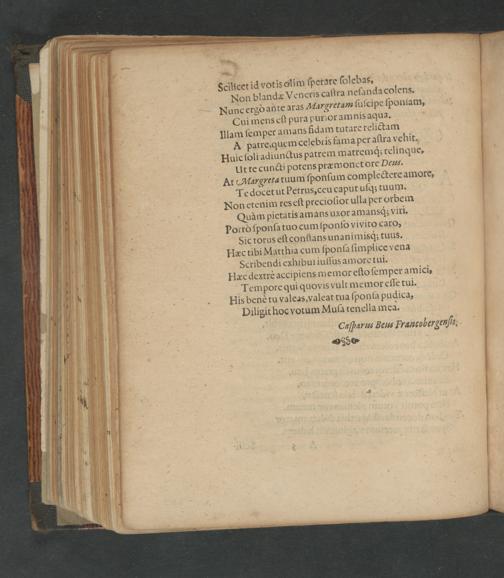 Scilicet id votis olim sperare solebas,
Non blandæ Veneris castra nefanda colens.
Nunc ergò ante aras Margretam suscipe sponsam,
Cui mens est pura purior amnis aqua.
Illam semper amans fidam tutare relictam
A patre, quem celebris fama per astra vehit.
Huic soli adiunctus patrem matremq; relinque,
Ut te cuncti potens præmonet ore Deus.
At Margreta tuum sponsum complectere amore,
Te docet ut Petrus, ceu caput usq; tuum.
Non etenim res est preciosior ulla per orbem
Quàm pietatis amans uxor amansq; viri.
Porrò sponsa tuo cum sponso vivito caro,
Sic torus est constans unanimisq; tuus.
Hæc tibi Matthia cum sponsa simplice vena
Scribendi exhibui iussus amore tui.
Hæc dextrè accipiens memor esto semper amici,
Tempore qui quovis vult memor esse tui.
His benè tu valeas, valeat tua sponsa pudica,
Diligit hoc votum Musa tenella mea.
Casparus Beus Francobergensis.